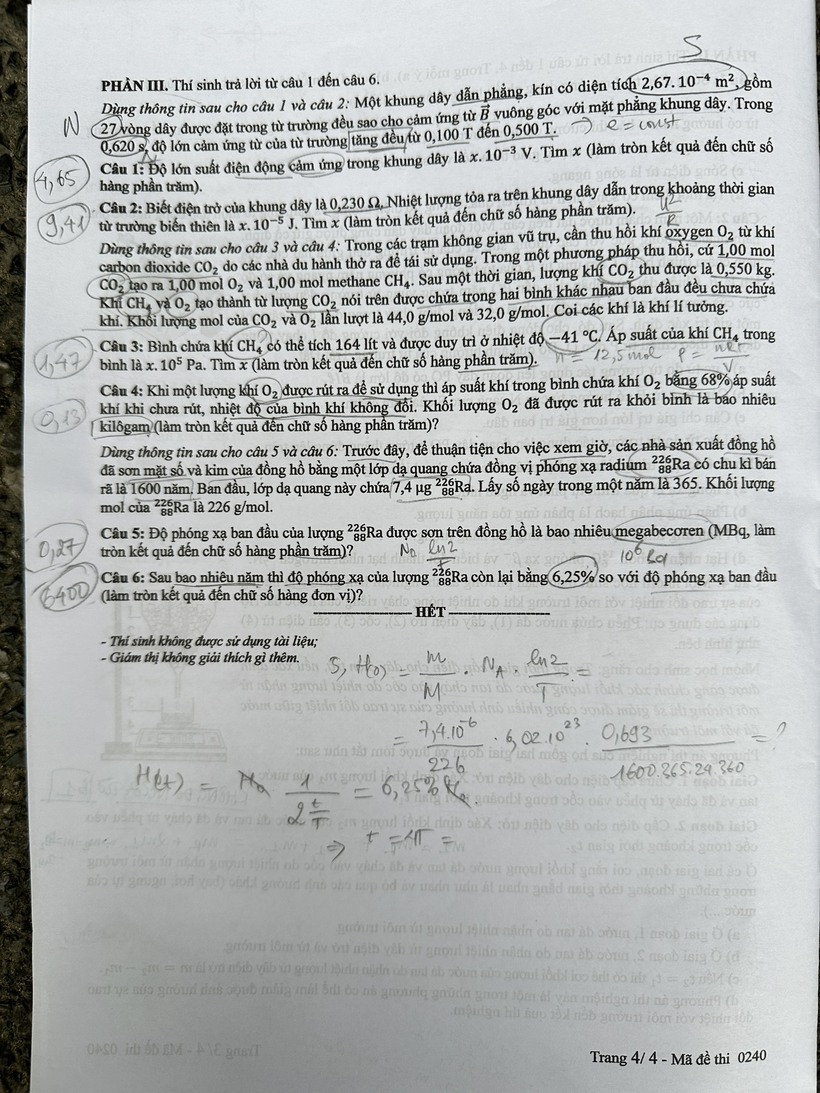 S
PHẦN III. Thí sinh trả lời từ câu 1 đến câu 6.
Dùng thông tin sau cho câu 1 và câu 2: Một khung dây dẫn phẳng, kín có diện tích 2,67. 10⁻⁴ m², gồm
N
27 vòng dây được đặt trong từ trường đều sao cho cảm ứng từ B⃗ vuông góc với mặt phẳng khung dây. Trong
0,620 s, độ lớn cảm ứng từ của từ trường tăng đều từ 0,100 T đến 0,500 T. → e = const
4,65
Câu 1: Độ lớn suất điện động cảm ứng trong khung dây là x. 10⁻³ V. Tìm x (làm tròn kết quả đến chữ số
hàng phần trăm).
9,41
Câu 2: Biết điện trở của khung dây là 0,230 Ω. Nhiệt lượng tỏa ra trên khung dây dẫn trong khoảng thời gian
từ trường biến thiên là x. 10⁻⁵ J. Tìm x (làm tròn kết quả đến chữ số hàng phần trăm). U²/R
Dùng thông tin sau cho câu 3 và câu 4: Trong các trạm không gian vũ trụ, cần thu hồi khí oxygen O₂ từ khí
carbon dioxide CO₂ do các nhà du hành thở ra để tái sử dụng. Trong một phương pháp thu hồi, cứ 1,00 mol
CO₂ tạo ra 1,00 mol O₂ và 1,00 mol methane CH₄. Sau một thời gian, lượng khí CO₂ thu được là 0,550 kg.
Khí CH₄ và O₂ tạo thành từ lượng CO₂ nói trên được chứa trong hai bình khác nhau ban đầu đều chưa chứa
khí. Khối lượng mol của CO₂ và O₂ lần lượt là 44,0 g/mol và 32,0 g/mol. Coi các khí là khí lí tưởng.
1,47
Câu 3: Bình chứa khí CH₄ có thể tích 164 lít và được duy trì ở nhiệt độ −41 °C. Áp suất của khí CH₄ trong
bình là x. 10⁵ Pa. Tìm x (làm tròn kết quả đến chữ số hàng phần trăm). n = 12,5 mol p = nRT/V
Câu 4: Khi một lượng khí O₂ được rút ra để sử dụng thì áp suất khí trong bình chứa khí O₂ bằng 68% áp suất
0,13
khí khi chưa rút, nhiệt độ của bình khí không đổi. Khối lượng O₂ đã được rút ra khỏi bình là bao nhiêu
kilôgam (làm tròn kết quả đến chữ số hàng phần trăm)?
Dùng thông tin sau cho câu 5 và câu 6: Trước đây, để thuận tiện cho việc xem giờ, các nhà sản xuất đồng hồ
đã sơn mặt số và kim của đồng hồ bằng một lớp dạ quang chứa đồng vị phóng xạ radium ²²⁶₈₈Ra có chu kì bán
rã là 1600 năm. Ban đầu, lớp dạ quang này chứa 7,4 μg ²²⁶₈₈Ra. Lấy số ngày trong một năm là 365. Khối lượng
mol của ²²⁶₈₈Ra là 226 g/mol.
0,27
Câu 5: Độ phóng xạ ban đầu của lượng ²²⁶₈₈Ra được sơn trên đồng hồ là bao nhiêu megabecơren (MBq, làm
tròn kết quả đến chữ số hàng phần trăm)? N₀ ln2/T 10⁶ Bq
6400
Câu 6: Sau bao nhiêu năm thì độ phóng xạ của lượng ²²⁶₈₈Ra còn lại bằng 6,25% so với độ phóng xạ ban đầu
(làm tròn kết quả đến chữ số hàng đơn vị)?
HẾT
- Thí sinh không được sử dụng tài liệu;
- Giám thị không giải thích gì thêm.
5, H(0) = m/M . N_A . ln2/T =
= 7,4.10⁻⁶/226 . 6,02.10²³ . 0,693/1600.365.24.360 = ?
H(t) = 1/2^(t/T) = 6,25%
⇒ t = 4T =
Trang 4/ 4 - Mã đề thi 0240